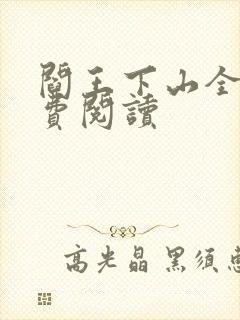 閻王下山全
費閱讀
高光晶 黑須慧